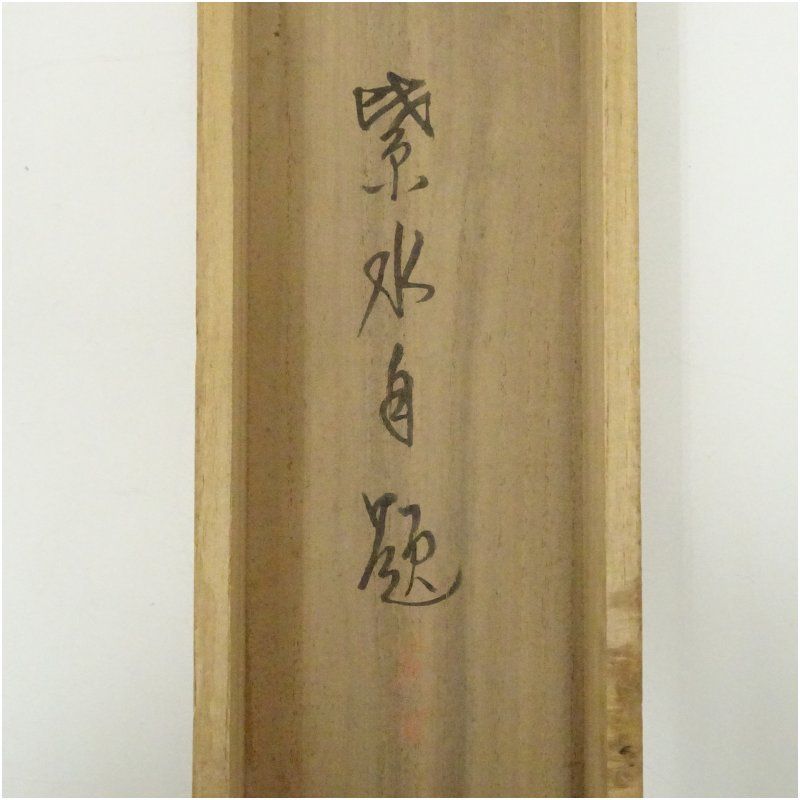 紫水自題